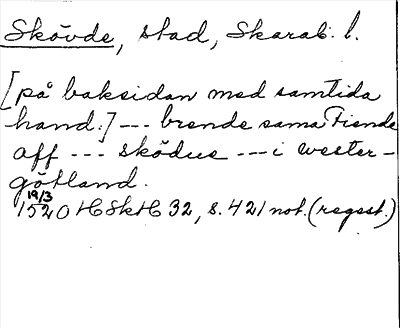 Skövde, stad, Skarab. l.
[på baksidan med samtida
hand:] --- brende sama Fiende
aff --- sködue --- i wester-
götland.
19/3
1520 HSH 32, s. 421 not. (regest.)